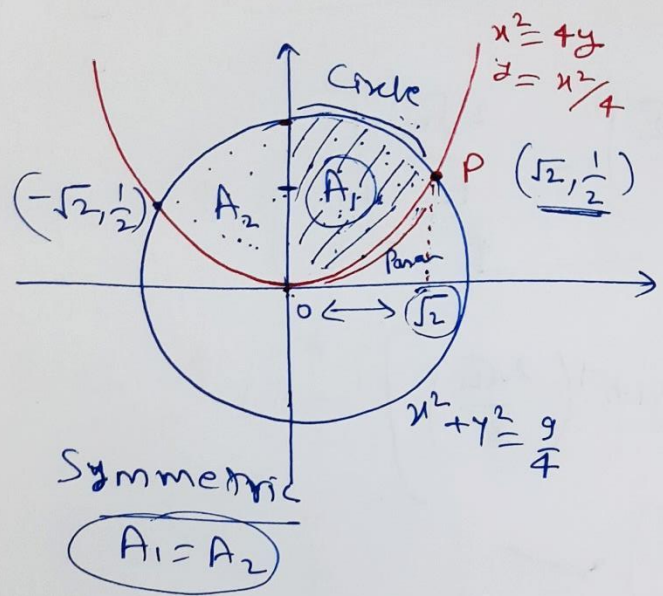 x² = 4y
y = x²/4
Circle
P
(√2, 1/2)
(-√2, 1/2)
A₂
A₁
Para
O ↔ √2
x² + y² = 9/4
Symmetric
A₁ = A₂